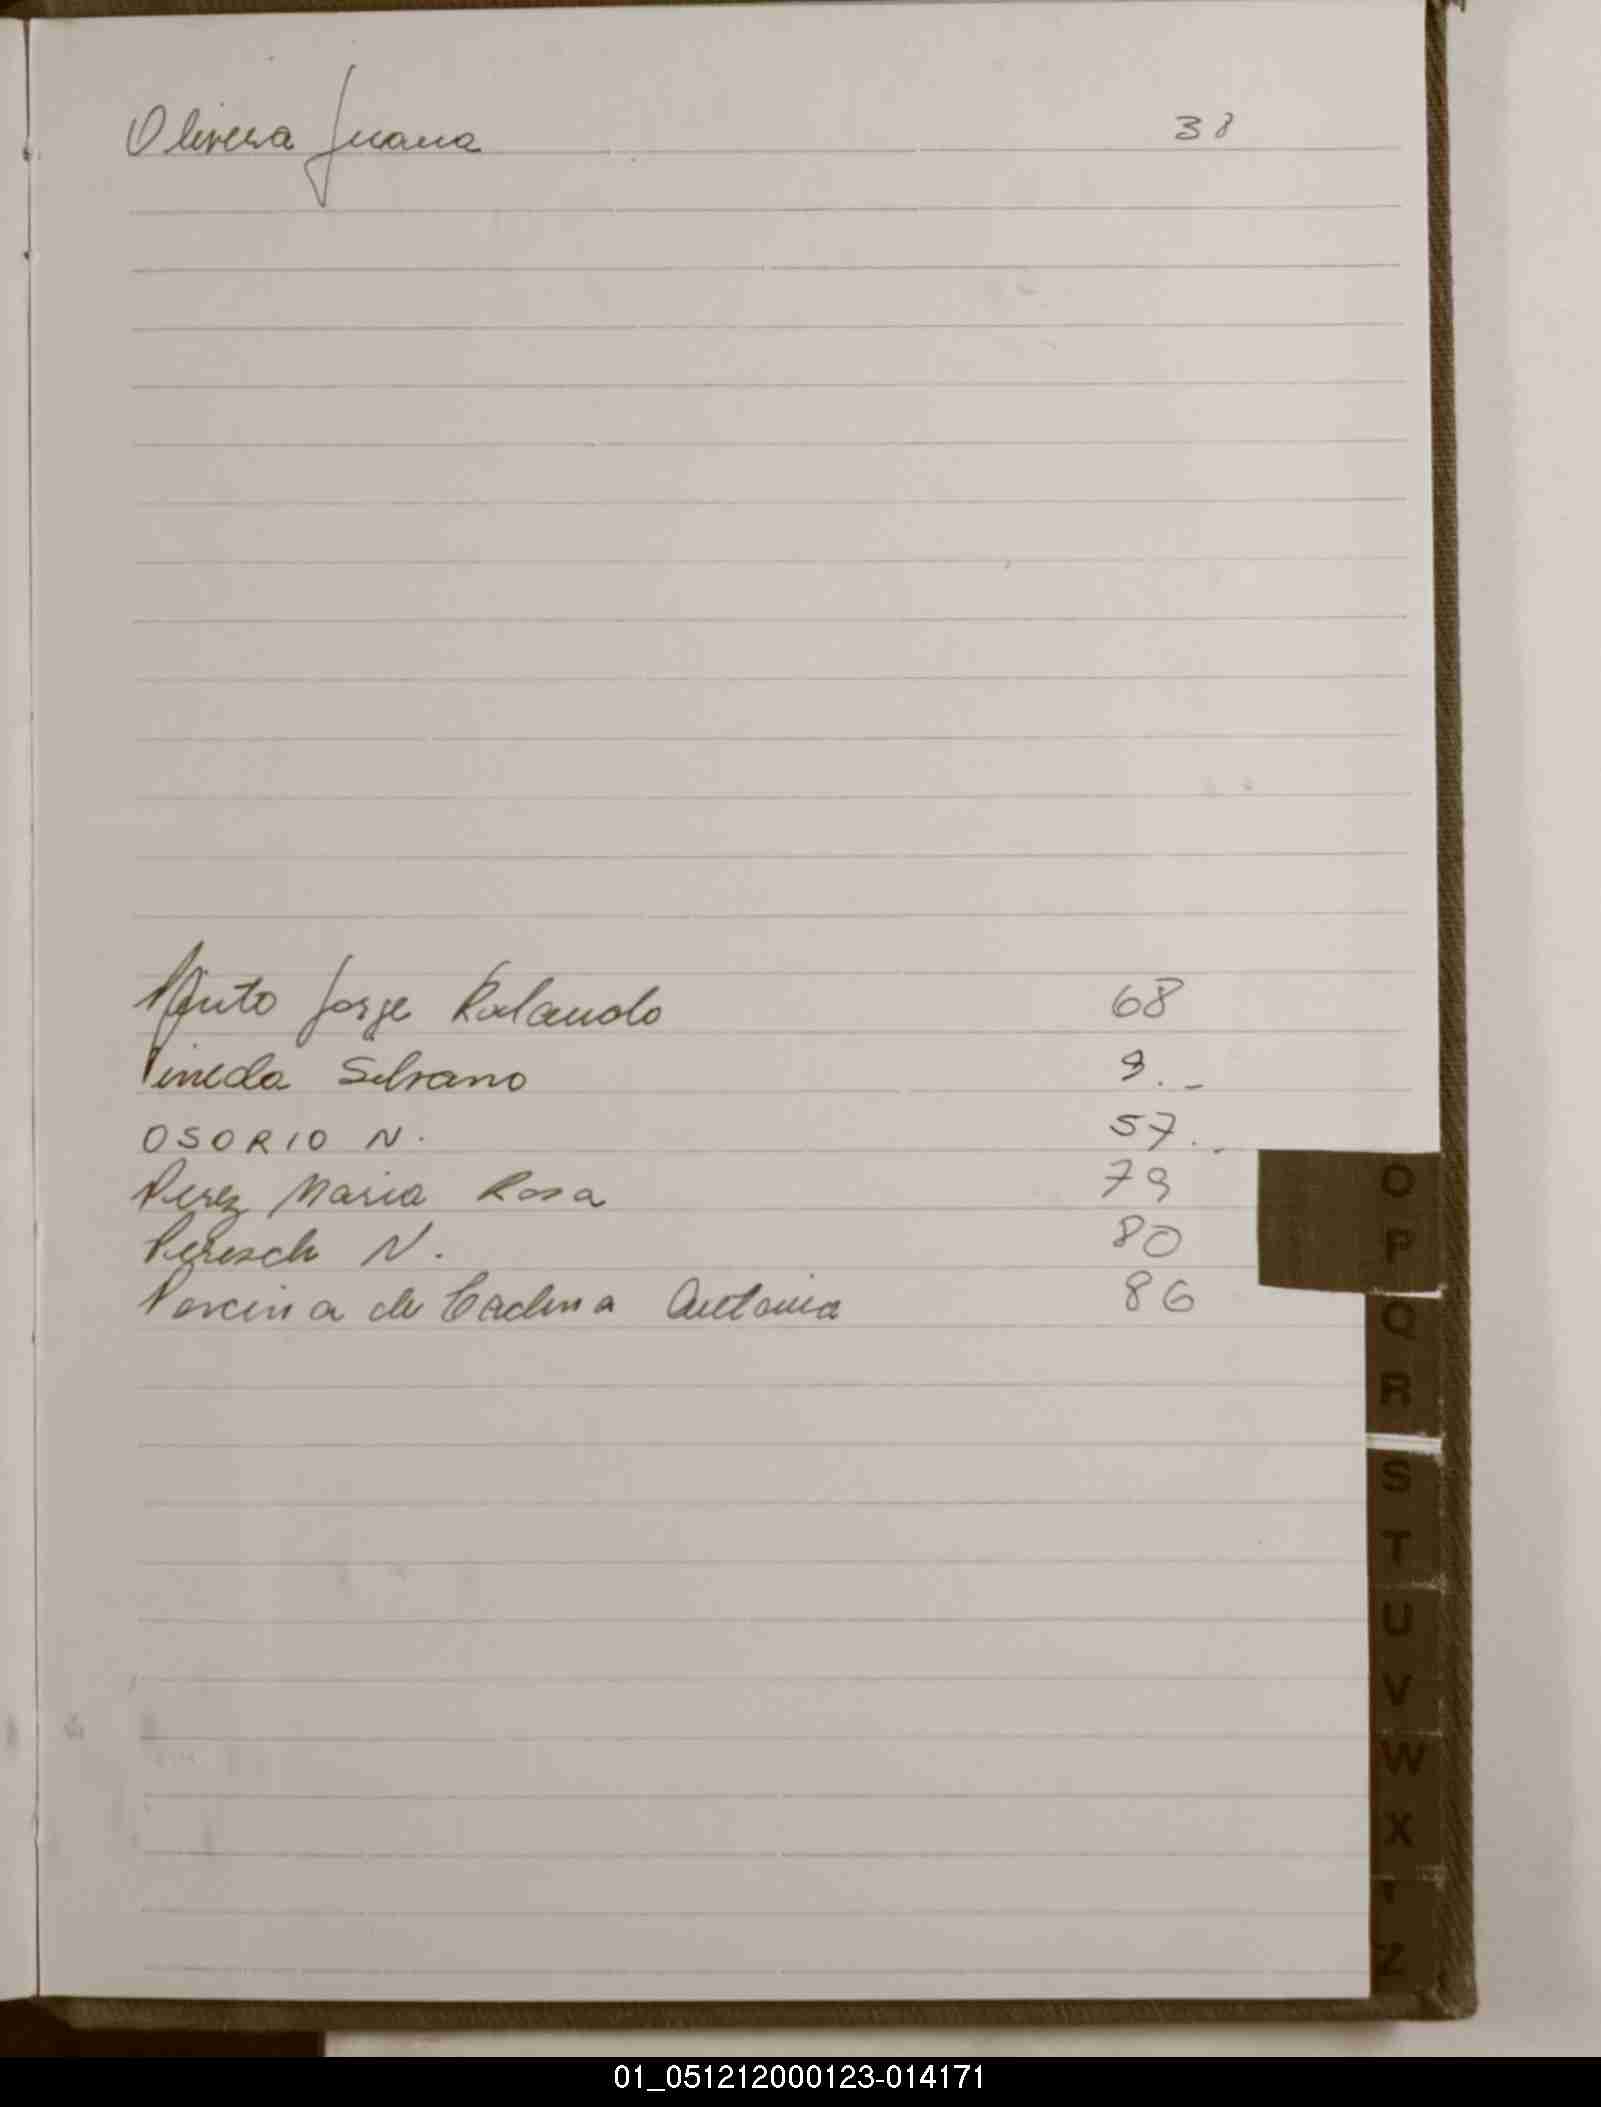 Olivera Juana 38
Pinto Jorge Rolando 68
Pineda Silvano 9.-
OSORIO N. 57.-
Perez Maria Rosa 79
Peresch N. 80
Porcina de Cadena Antonia 86
O
P
Q
R
S
T
U
V
W
X
Z
01_051212000123-014171